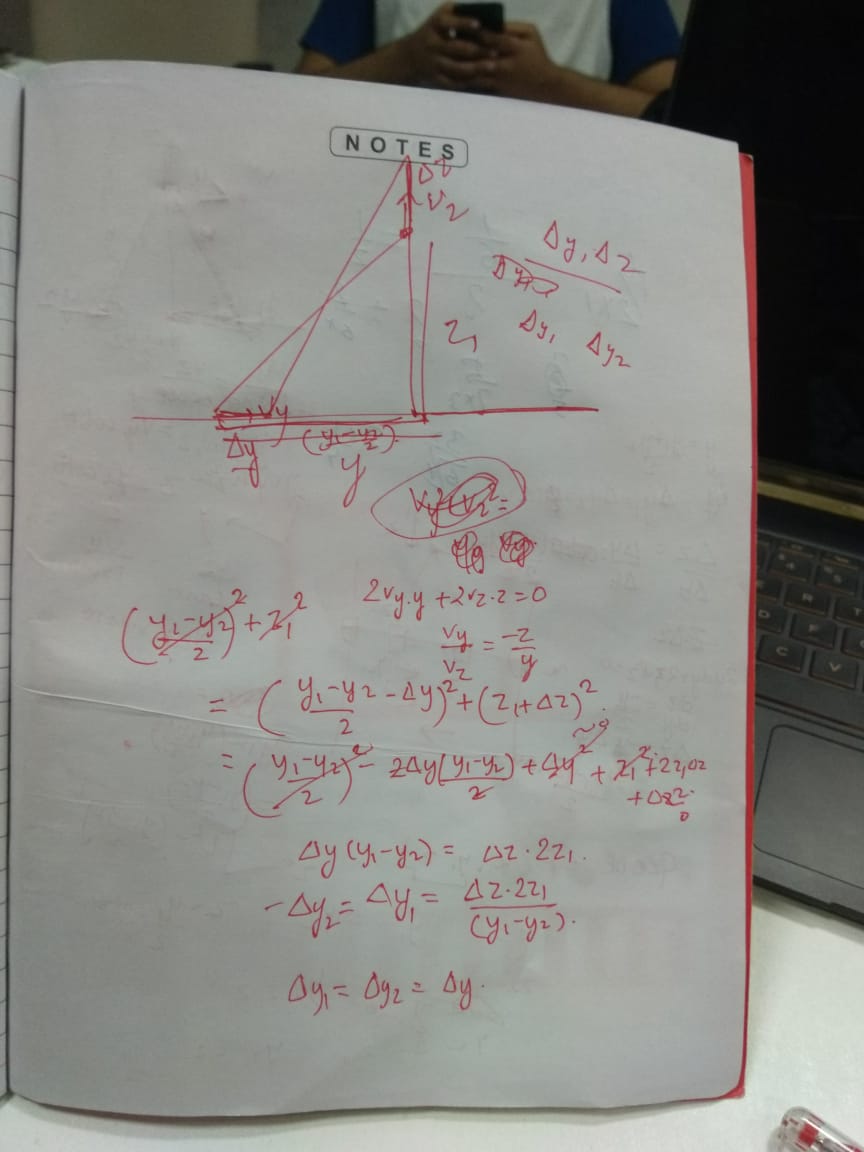 NOTES
Δz
Vz
Δy, Δz
z₁
Δy₁ Δy₂
Vy
Δy (y₁-y₂/2)
y
Vy² + Vz² =
2Vy.y + 2Vz.z = 0
(y₁-y₂/2)² + z₁²
Vy/Vz = -z/y
= (y₁-y₂/2 - Δy)² + (z₁+Δz)².
= (y₁-y₂/2)² - 2Δy(y₁-y₂)/2 + Δy² + z₁² + 2z₁Δz + Δz²
~0
0
Δy(y₁-y₂) = Δz·2z₁.
-Δy₂ = Δy₁ = Δz·2z₁/(y₁-y₂).
Δy₁ = Δy₂ = Δy.